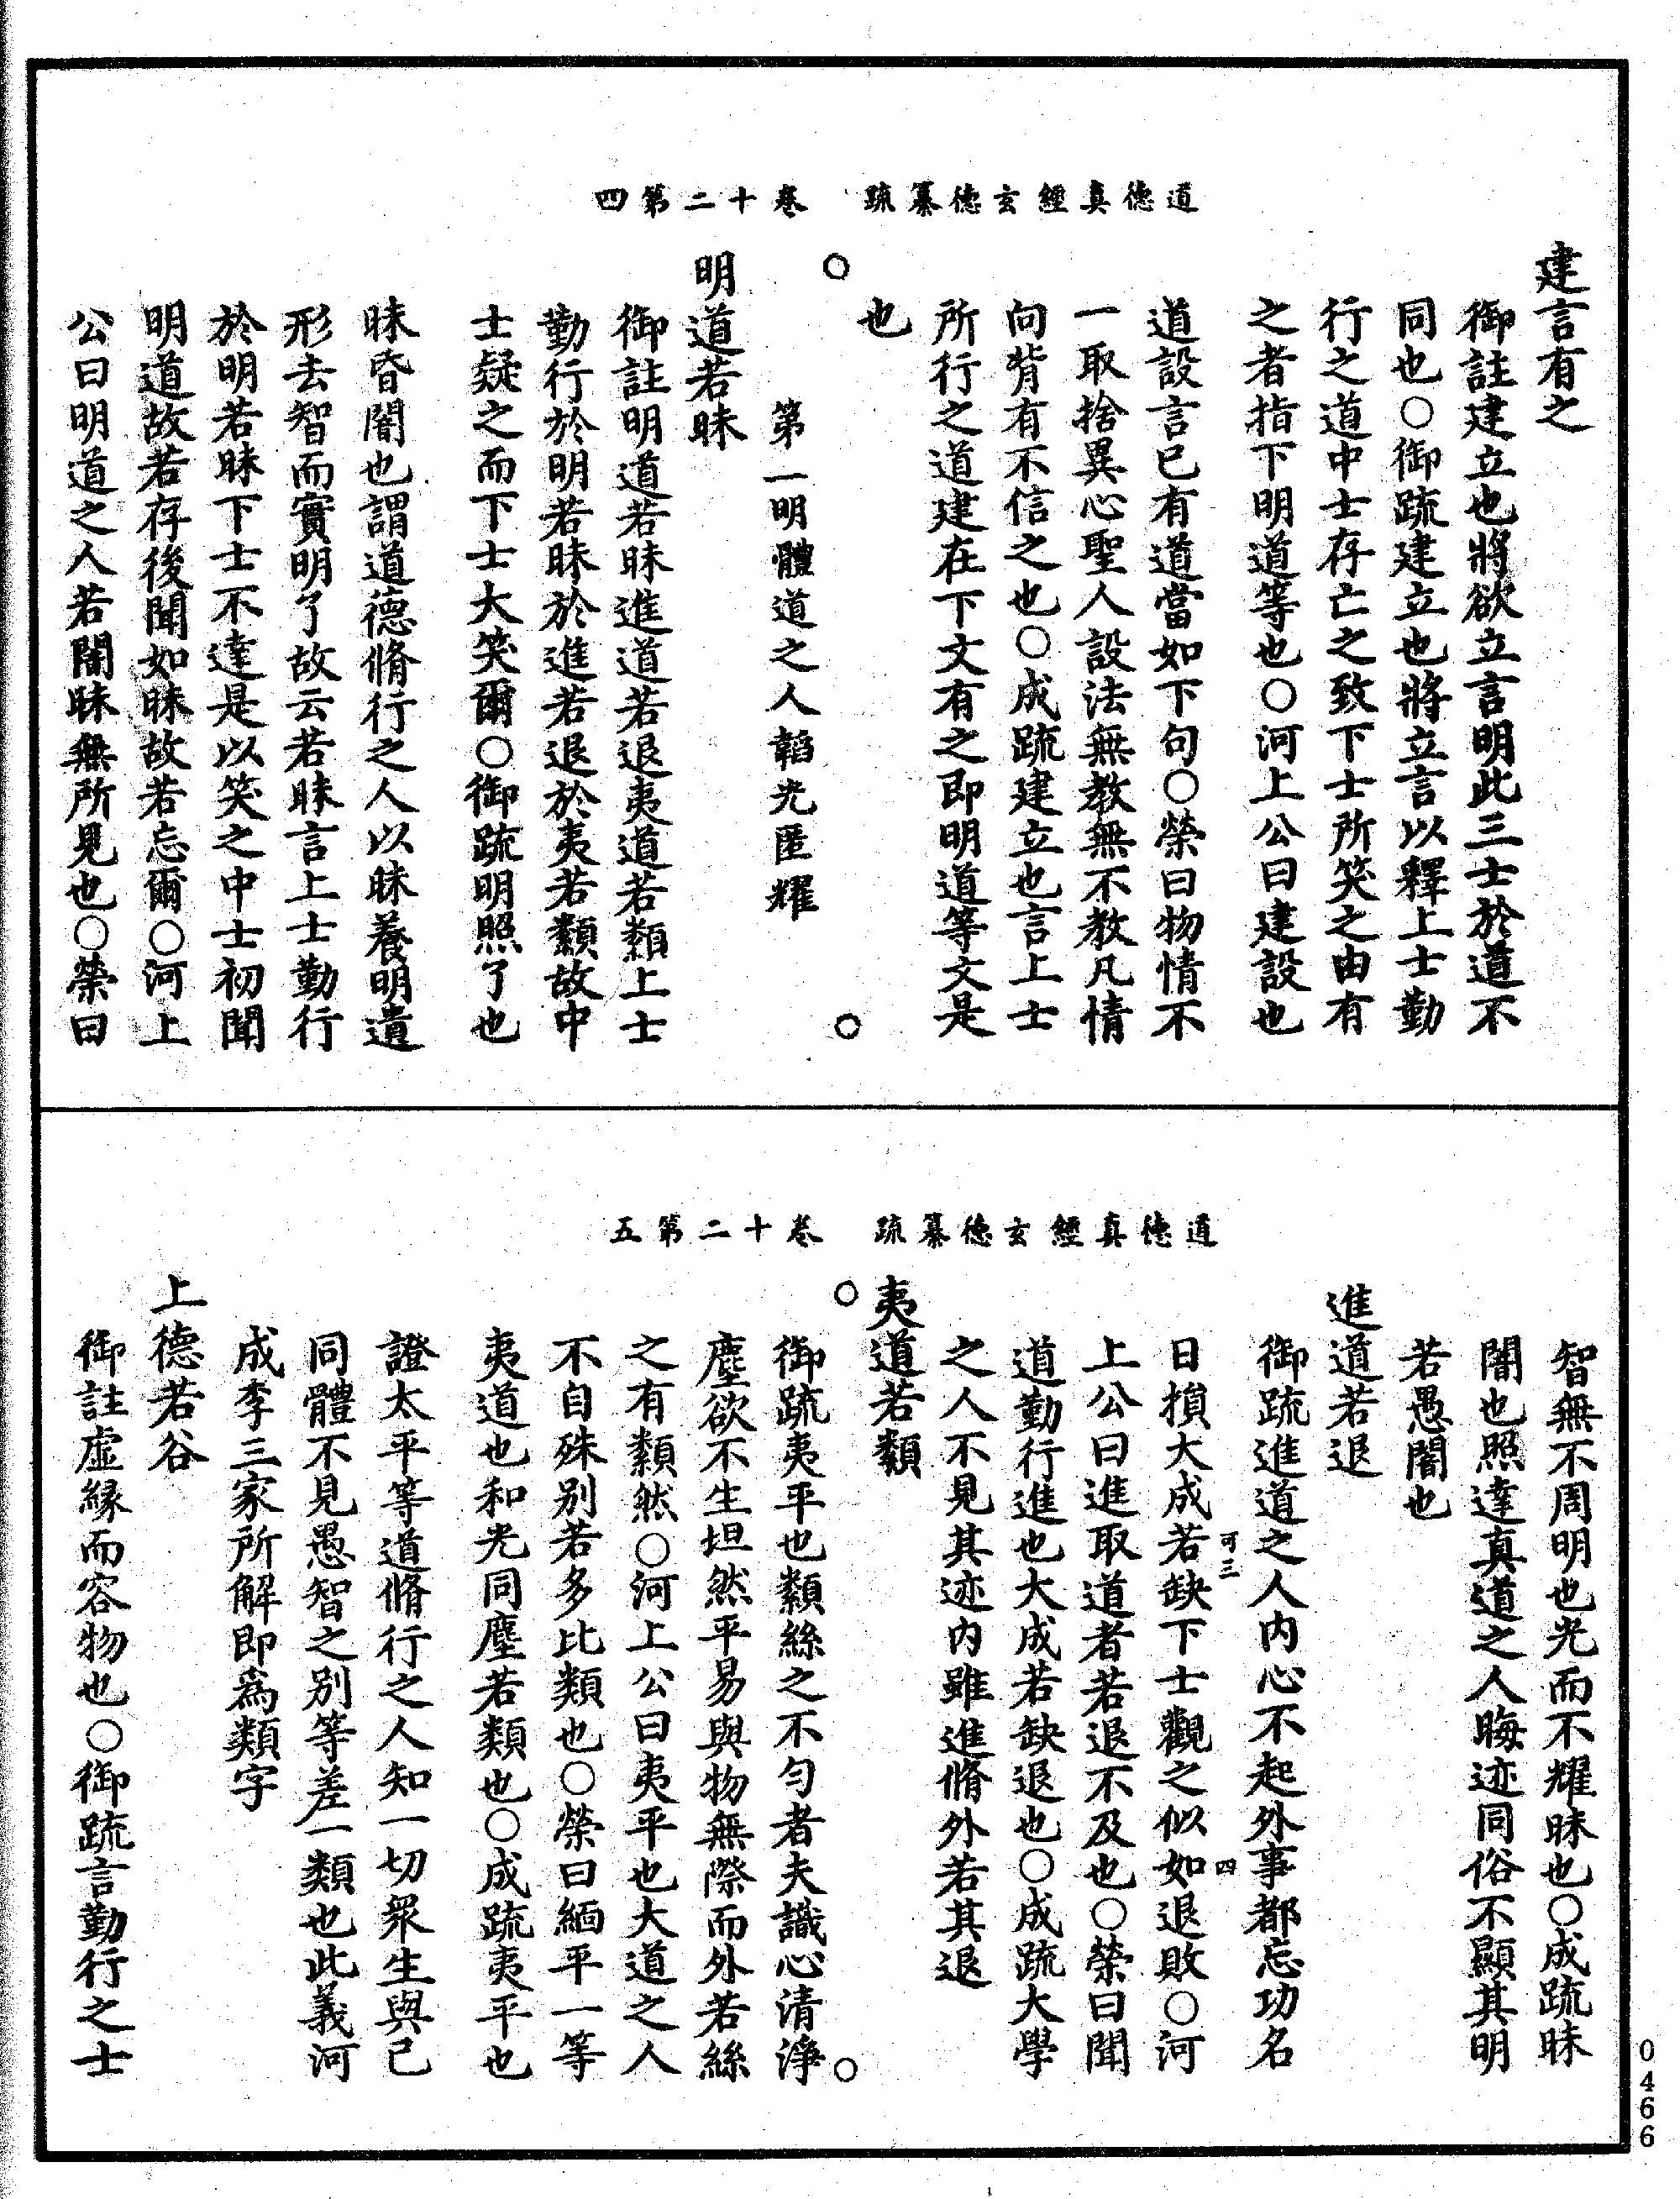 道德真經玄德纂疏　卷十二第四
建言有之
御註建立也將欲立言明此三士於道不
同也○御疏建立也將立言以釋上士勤
行之道中士存亡之致下士所笑之由有
之者指下明道等也○河上公曰建設也
道設言已有道當如下句○榮曰物情不
一取捨異心聖人設法無教無不教凡情
向背有不信之也○成疏建立也言上士
所行之道建在下文有之即明道等文是
也
○
○
第一明體道之人韜光匿耀
明道若昧
御註明道若昧進道若退夷道若纇上士
勤行於明若昧於進若退於夷若纇故中
士疑之而下士大笑爾○御疏明照了也
昧昏闇也謂道德脩行之人以昧養明遺
形去智而實明了故云若昧言上士勤行
於明若昧下士不達是以笑之中士初聞
明道故若存後聞如昧故若忘爾○河上
公曰明道之人若闇昧無所見也○榮曰
道德真經玄德纂疏　卷十二第五
智無不周明也光而不耀昧也○成疏昧
闇也照達真道之人晦迹同俗不顯其明
若愚闇也
進道若退
御疏進道之人內心不起外事都忘功名
可三
四
日損大成若缺下士觀之似如退敗○河
上公曰進取道者若退不及也○榮曰聞
道勤行進也大成若缺退也○成疏大學
之人不見其迹內雖進脩外若其退
夷道若纇
○
○
御疏夷平也纇絲之不勻者夫識心清淨
塵欲不生坦然平易與物無際而外若絲
之有纇然○河上公曰夷平也大道之人
不自殊別若多比類也○榮曰緬平一等
夷道也和光同塵若類也○成疏夷平也
證太平等道脩行之人知一切眾生與己
同體不見愚智之別等差一類也此義河
成李三家所解即為類字
上德若谷
御註虛緣而容物也○御疏言勤行之士
0466